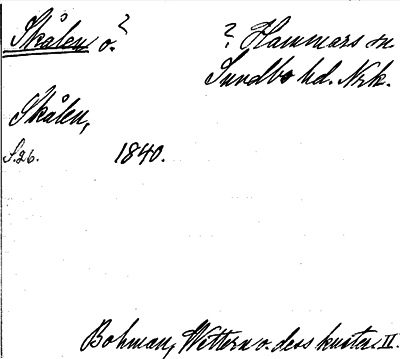 Skålen ö. ?
? Hammars sn.
Sundbo hd. Nrk.
Skålen,
S.26. 1840.
Bohman, Wettern o. dess kuster. II.